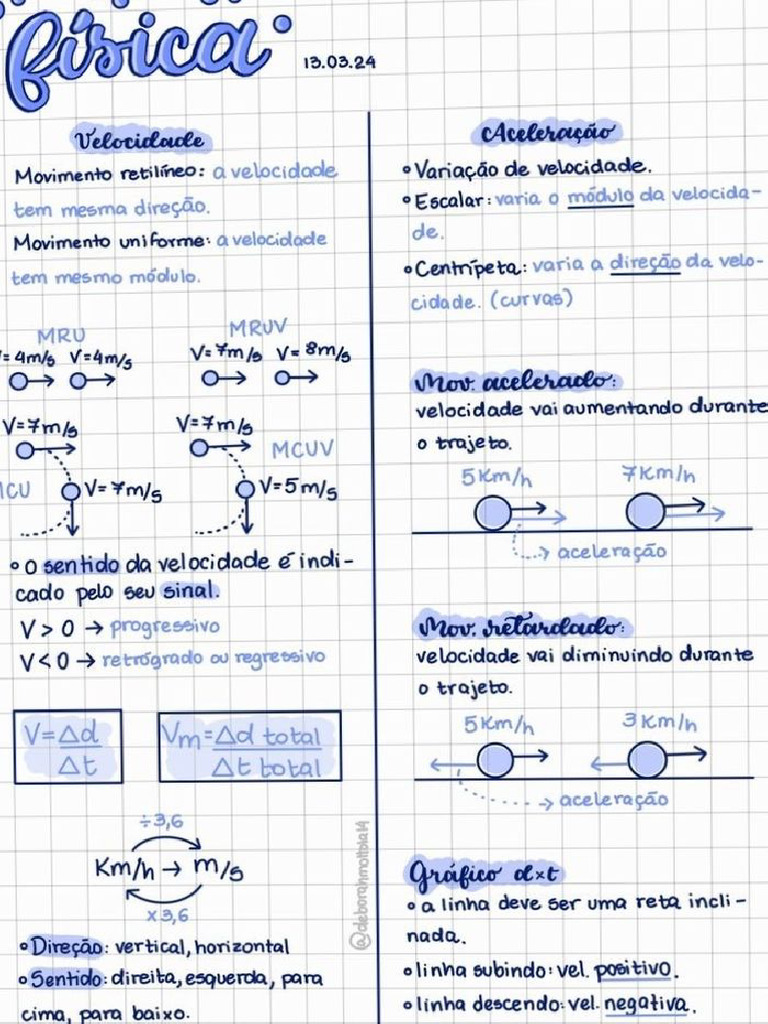 física
13.03.24
Velocidade
Movimento retilíneo: a velocidade
tem mesma direção.
Movimento uniforme: a velocidade
tem mesmo módulo.
MRU
= 4m/s V=4m/s
MRUV
V=7m/s V=8m/s
V=7m/s
MCU
V=7m/s
V=7m/s
MCUV
V=5m/s
• O sentido da velocidade é indi-
cado pelo seu sinal.
V > 0 → progressivo
V < 0 → retrógrado ou regressivo
V = Δd
Δt
Vm = Δd total
Δt total
÷3,6
Km/h → m/s
x3,6
• Direção: vertical, horizontal
• Sentido: direita, esquerda, para
cima, para baixo.
@deborahmottola14
Aceleração
• Variação de velocidade.
• Escalar: varia o módulo da velocida-
de.
• Centrípeta: varia a direção da velo-
cidade. (curvas)
Mov. acelerado:
velocidade vai aumentando durante
o trajeto.
5Km/h 7Km/h
aceleração
Mov. retardado:
velocidade vai diminuindo durante
o trajeto.
5Km/h 3Km/h
aceleração
Gráfico dxt
• a linha deve ser uma reta incli-
nada.
• linha subindo: vel. positivo.
• linha descendo: vel. negativa.